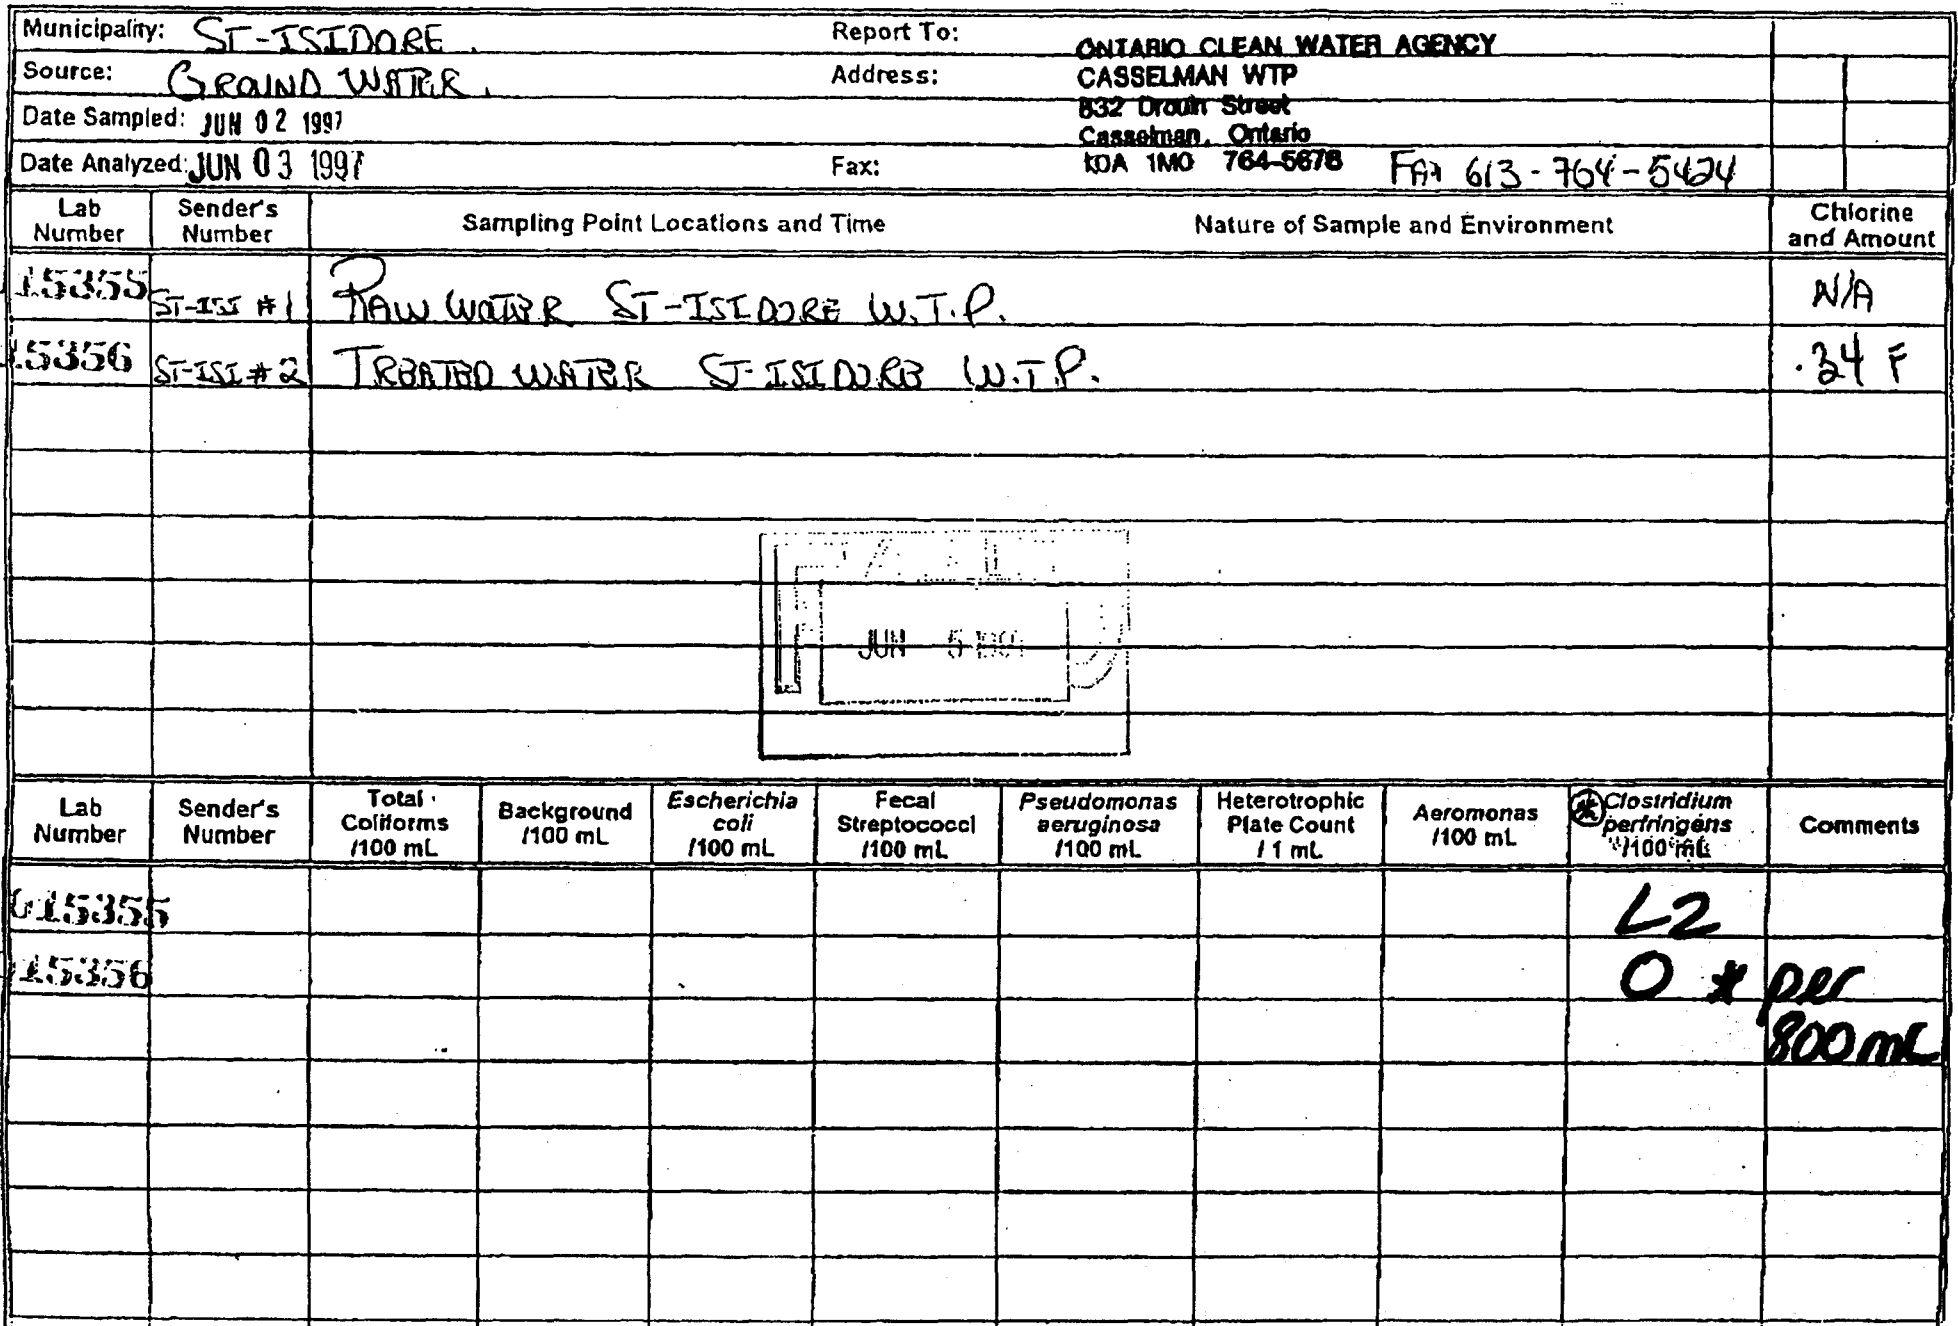 Municipality: ST-ISIDORE.
Report To: ONTARIO CLEAN WATER AGENCY
Source: GROUND WATER.
Address: CASSELMAN WTP
832 Drouin Street
Date Sampled: JUN 02 1997
Casselman, Ontario
Date Analyzed: JUN 03 1997
Fax: K0A 1M0 764-5678 FAX 613-764-5424
Lab Number Sender's Number Sampling Point Locations and Time Nature of Sample and Environment Chlorine and Amount
15355 ST-ISI #1 RAW WATER ST-ISIDORE W.T.P. N/A
15356 ST-ISI #2 TREATED WATER ST-ISIDORE W.T.P. .34 F
JUN 5
Lab Number Sender's Number Total Coliforms /100 mL Background /100 mL Escherichia coli /100 mL Fecal Streptococci /100 mL Pseudomonas aeruginosa /100 mL Heterotrophic Plate Count / 1 mL Aeromonas /100 mL * Clostridium perfringens /100 mL Comments
015355 L2
015356 0 * per
800 mL